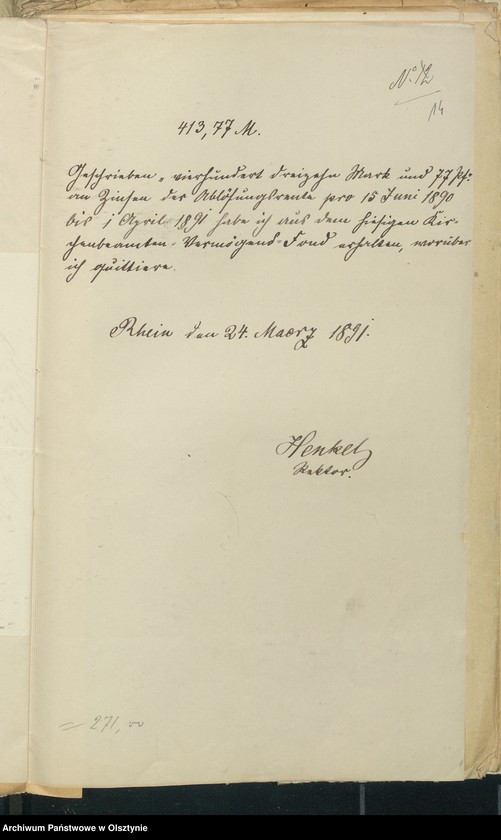 No 12
14
413,77 M.
Geschrieben „vierhundert dreizehn Mark und 77 Pf."
an Zinsen der Ablösungsrente pro 15 Juni 1890
bis 1 April 1891 habe ich aus dem hiesigen Kir-
chenbeamten-Vermögens-Fond erhalten, worüber
ich quittiere.
Rhein den 24. Maerz 1891.
Henkel
Rektor.
= 271,00
Archiwum Państwowe w Olsztynie